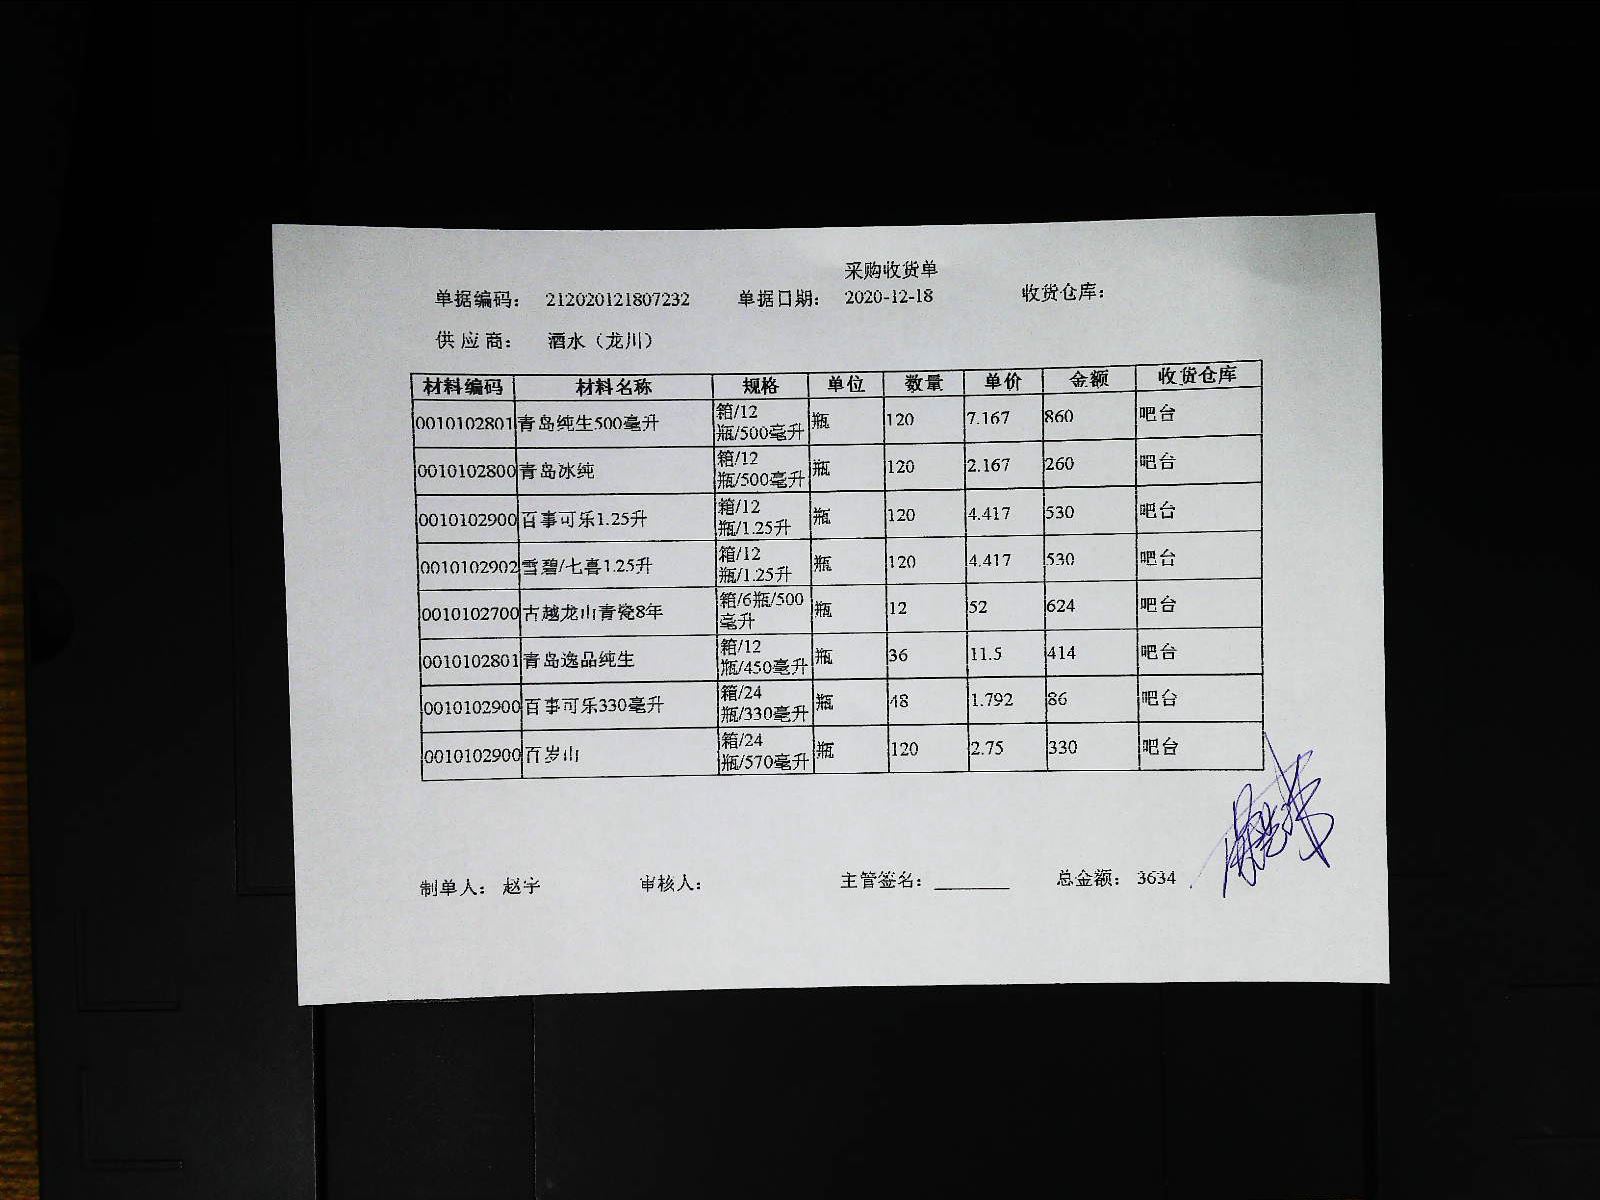 采购收货单
单据编码： 212020121807232 单据日期： 2020-12-18 收货仓库：
供应商： 酒水（龙川）
材料编码 材料名称 规格 单位 数量 单价 金额 收货仓库
0010102801 青岛纯生500毫升 箱/12瓶/500毫升 瓶 120 7.167 860 吧台
0010102800 青岛冰纯 箱/12瓶/500毫升 瓶 120 2.167 260 吧台
0010102900 百事可乐1.25升 箱/12瓶/1.25升 瓶 120 4.417 530 吧台
0010102902 雪碧/七喜1.25升 箱/12瓶/1.25升 瓶 120 4.417 530 吧台
0010102700 古越龙山青瓷8年 箱/6瓶/500毫升 瓶 12 52 624 吧台
0010102801 青岛逸品纯生 箱/12瓶/450毫升 瓶 36 11.5 414 吧台
0010102900 百事可乐330毫升 箱/24瓶/330毫升 瓶 48 1.792 86 吧台
0010102900 百岁山 箱/24瓶/570毫升 瓶 120 2.75 330 吧台
制单人： 赵宇 审核人： 主管签名：________ 总金额： 3634